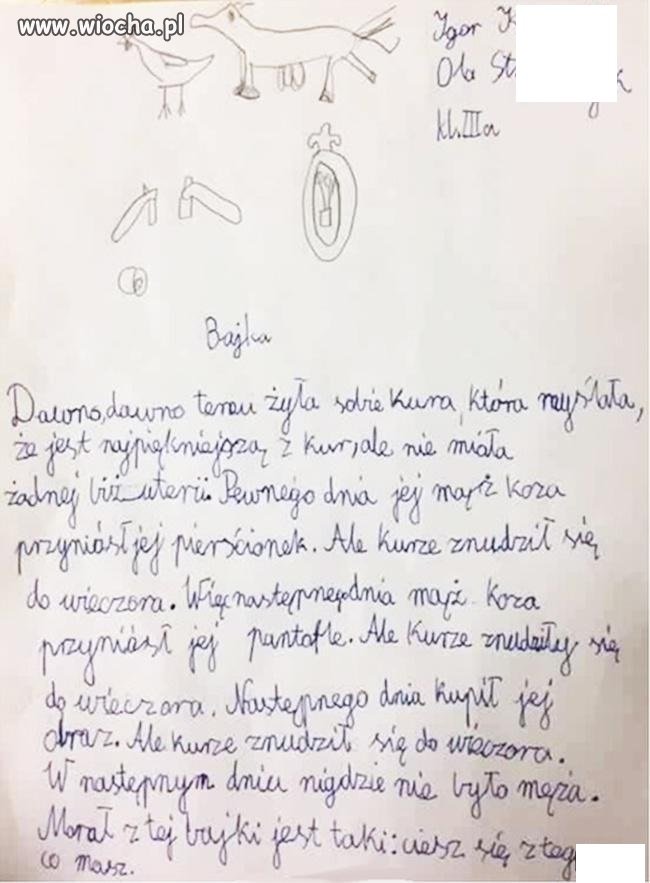 www.wiocha.pl
Igor K
Ola St k
kl. III a
Bajka
Dawno, dawno temu żyła sobie kura, która myślała,
że jest najpiękniejszą z kur, ale nie miała
żadnej biż_uterii. Pewnego dnia jej mąż koza
przyniósł jej pierścionek. Ale kurze znudził się
do wieczora. Więc następnego dnia mąż koza
przyniósł jej pantofle. Ale kurze znudziły się
do wieczora. Następnego dnia kupił jej
obraz. Ale kurze znudził się do wieczora.
W następnym dniu nigdzie nie było męża.
Morał z tej bajki jest taki: ciesz się z teg
co masz.